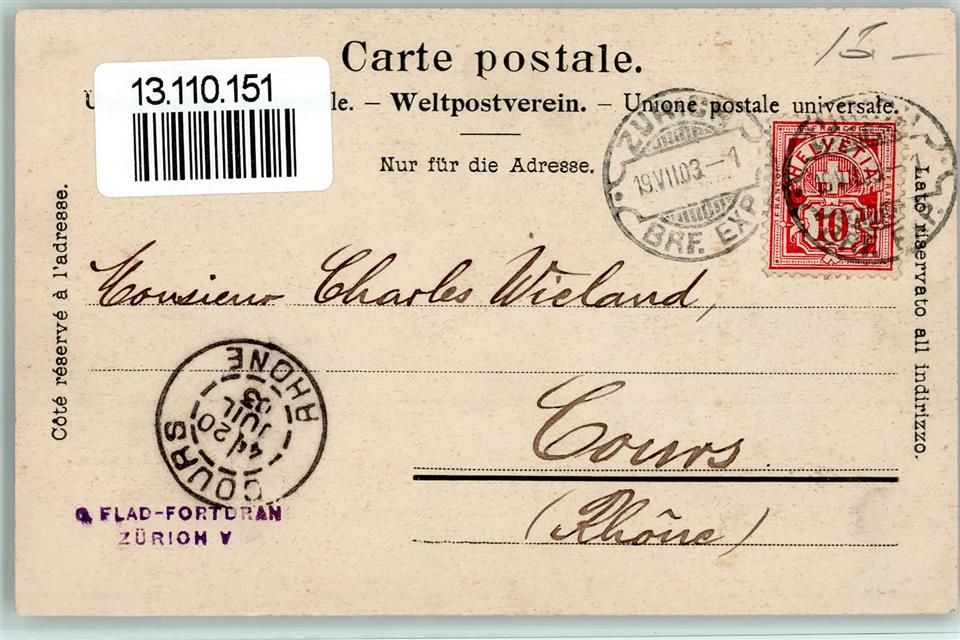 15 –
Carte postale.
13.110.151
– Weltpostverein. – Unione postale universale.
Nur für die Adresse.
ZÜRICH
19.VII.03.–1
BRF. EXP.
FRANCO
HELVETIA
10
Côté réservé à l'adresse.
Lato riservato all indirizzo.
Monsieur Charles Wieland,
COURS
RHONE
4E
20
JUIL
03
Cours
(Rhône)
FLAD-FORTDRAN
ZÜRICH V